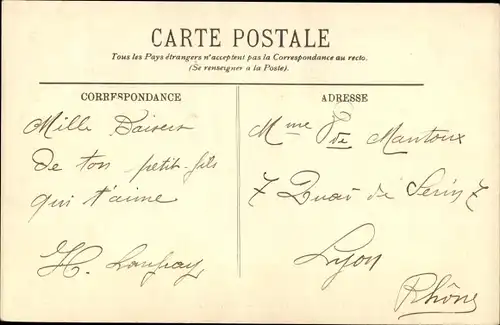 CARTE POSTALE
Tous les Pays étrangers n'acceptent pas la Correspondance au recto.
(Se renseigner a la Poste).
CORRESPONDANCE
Mille Baisers
de ton petit-fils
qui t'aime
H.
ADRESSE
Mme Vde Mantoux
7 Quai de Serin 7
Lyon
Rhône